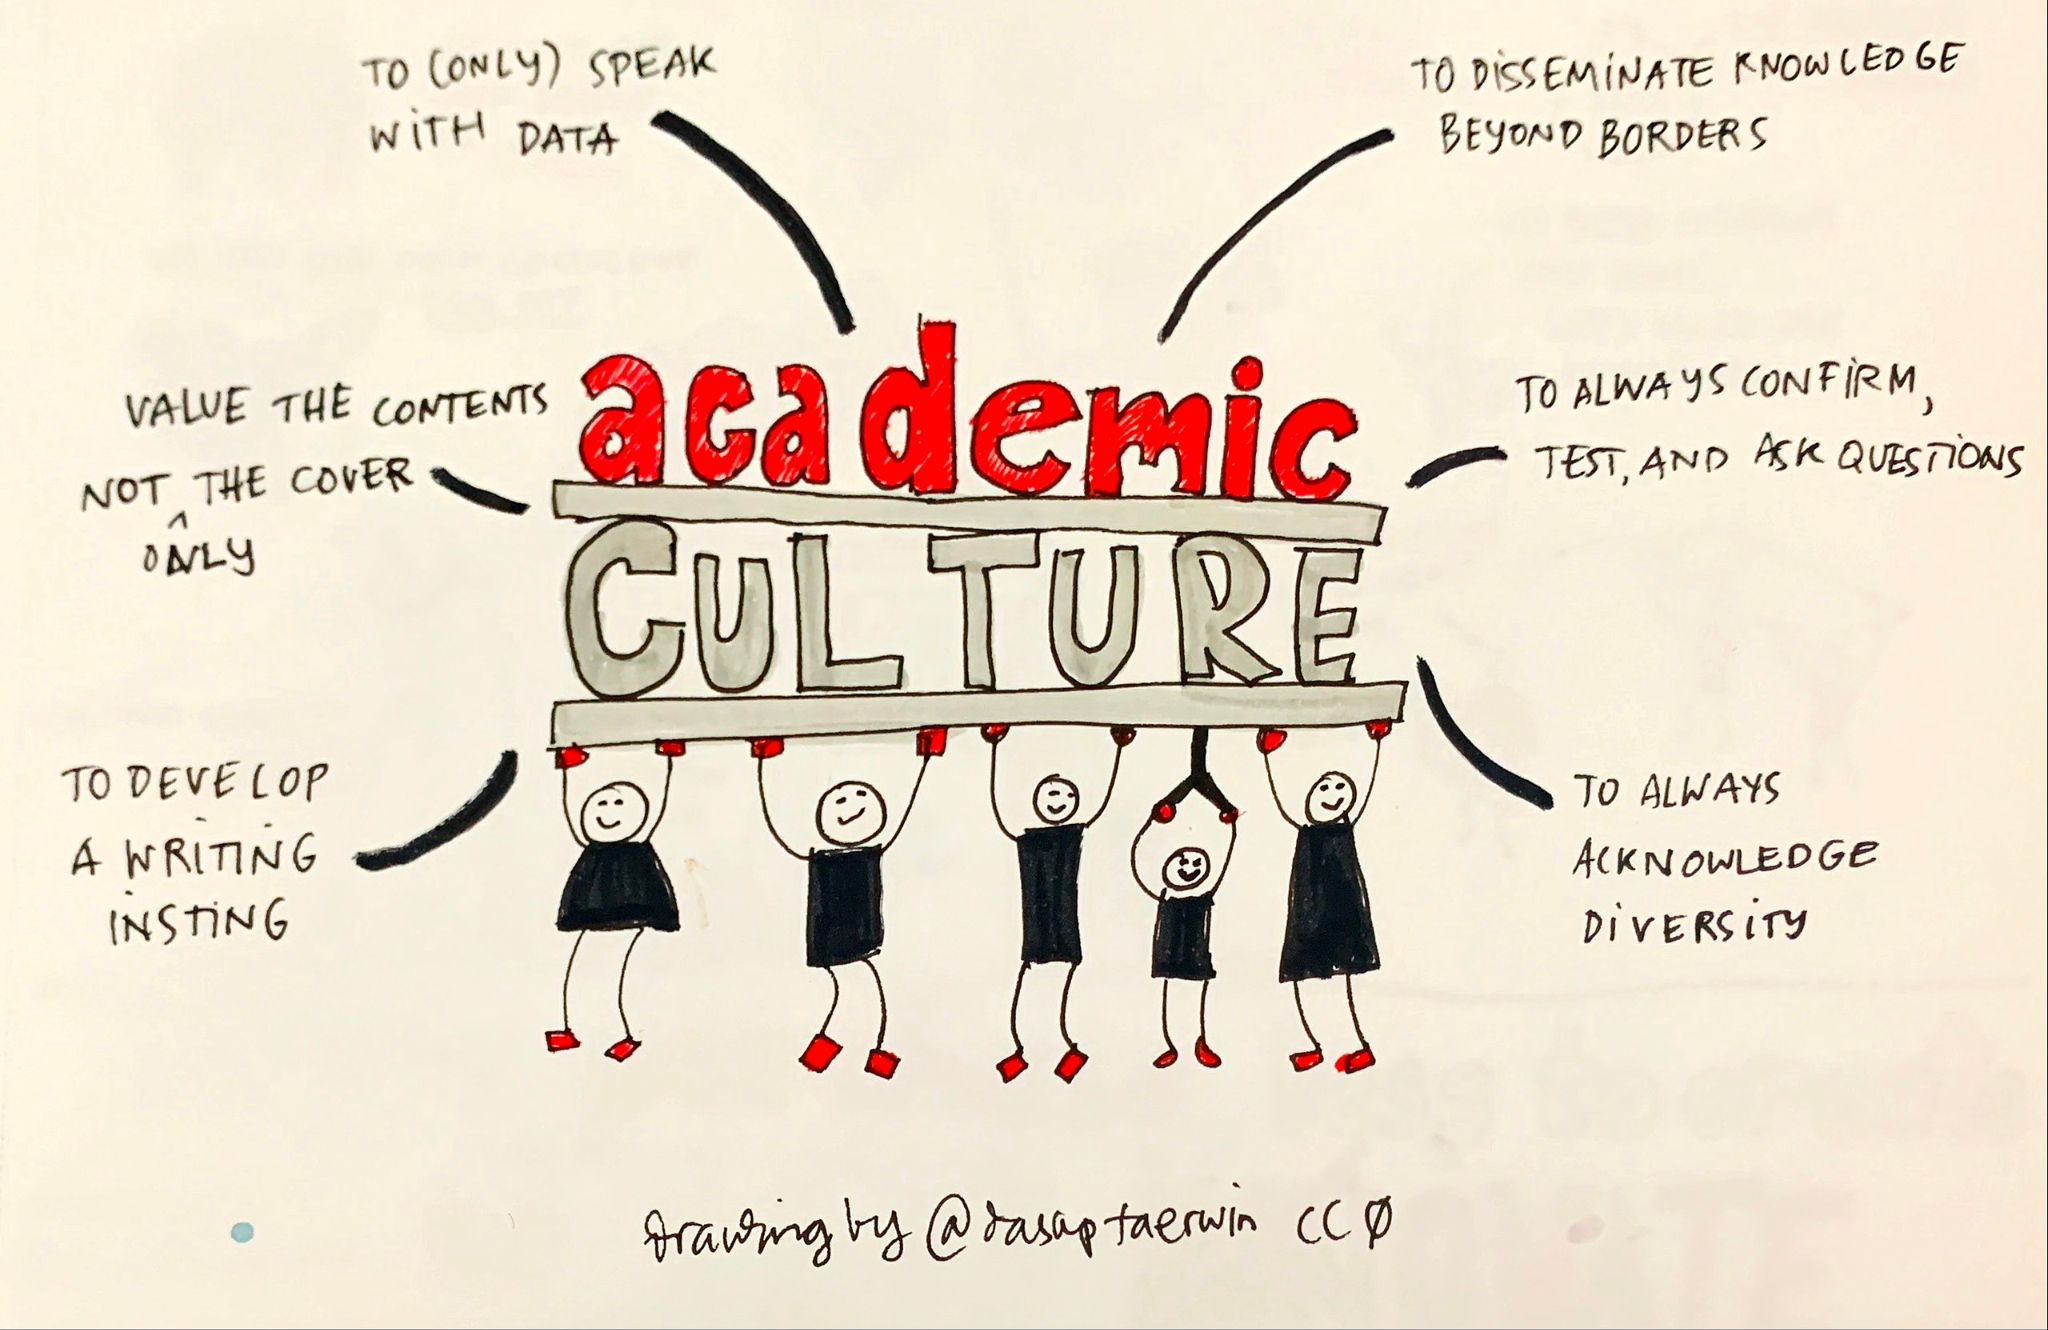 TO (ONLY) SPEAK
WITH DATA
TO DISSEMINATE KNOWLEDGE
BEYOND BORDERS
VALUE THE CONTENTS
NOT THE COVER
^
ONLY
TO ALWAYS CONFIRM,
TEST, AND ASK QUESTIONS
academic
CULTURE
TO DEVELOP
A WRITING
INSTING
TO ALWAYS
ACKNOWLEDGE
DIVERSITY
drawing by @dasaptaerwin CC Ø